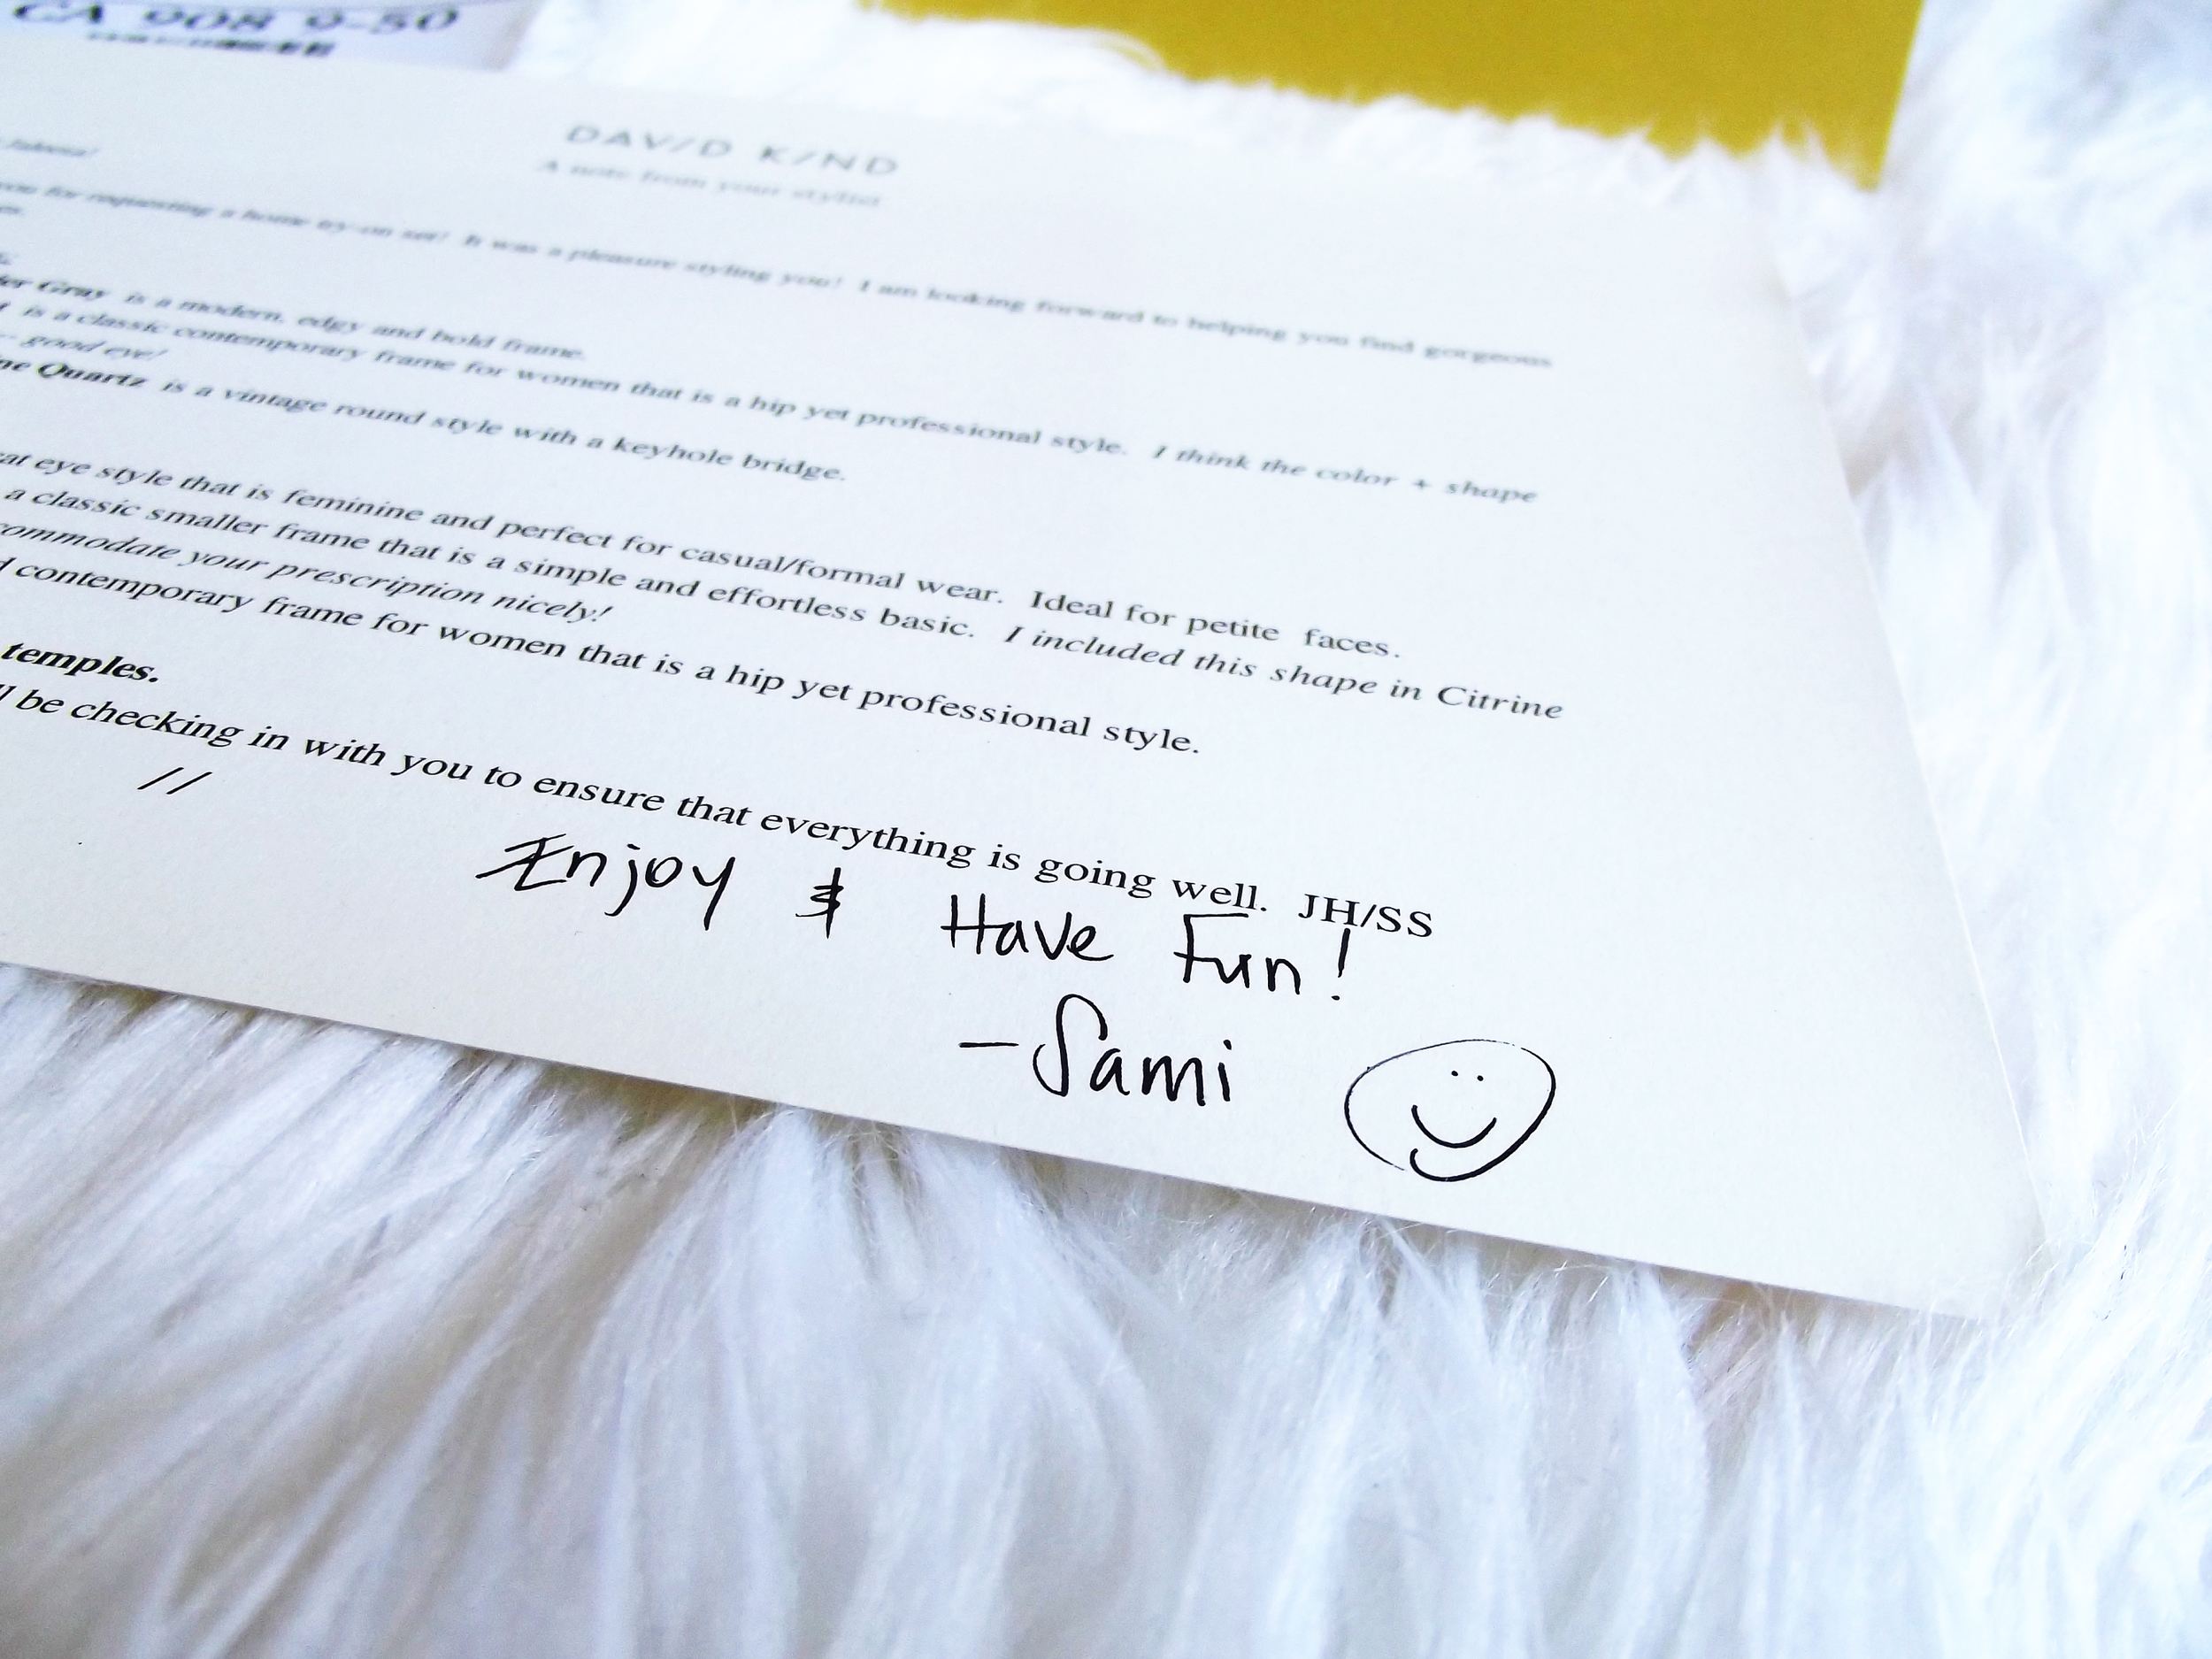 CA 908 9-50
DAV/D K/ND
A note from your stylist
you for requesting a home try-on set! It was a pleasure styling you! I am looking forward to helping you find gorgeous
Gray is a modern, edgy and bold frame.
is a classic contemporary frame for women that is a hip yet professional style. I think the color + shape
good eye!
Quartz is a vintage round style with a keyhole bridge.
eye style that is feminine and perfect for casual/formal wear. Ideal for petite faces.
a classic smaller frame that is a simple and effortless basic. I included this shape in Citrine
ommodate your prescription nicely!
contemporary frame for women that is a hip yet professional style.
temples.
be checking in with you to ensure that everything is going well. JH/SS
//
Enjoy & Have Fun!
-Sami